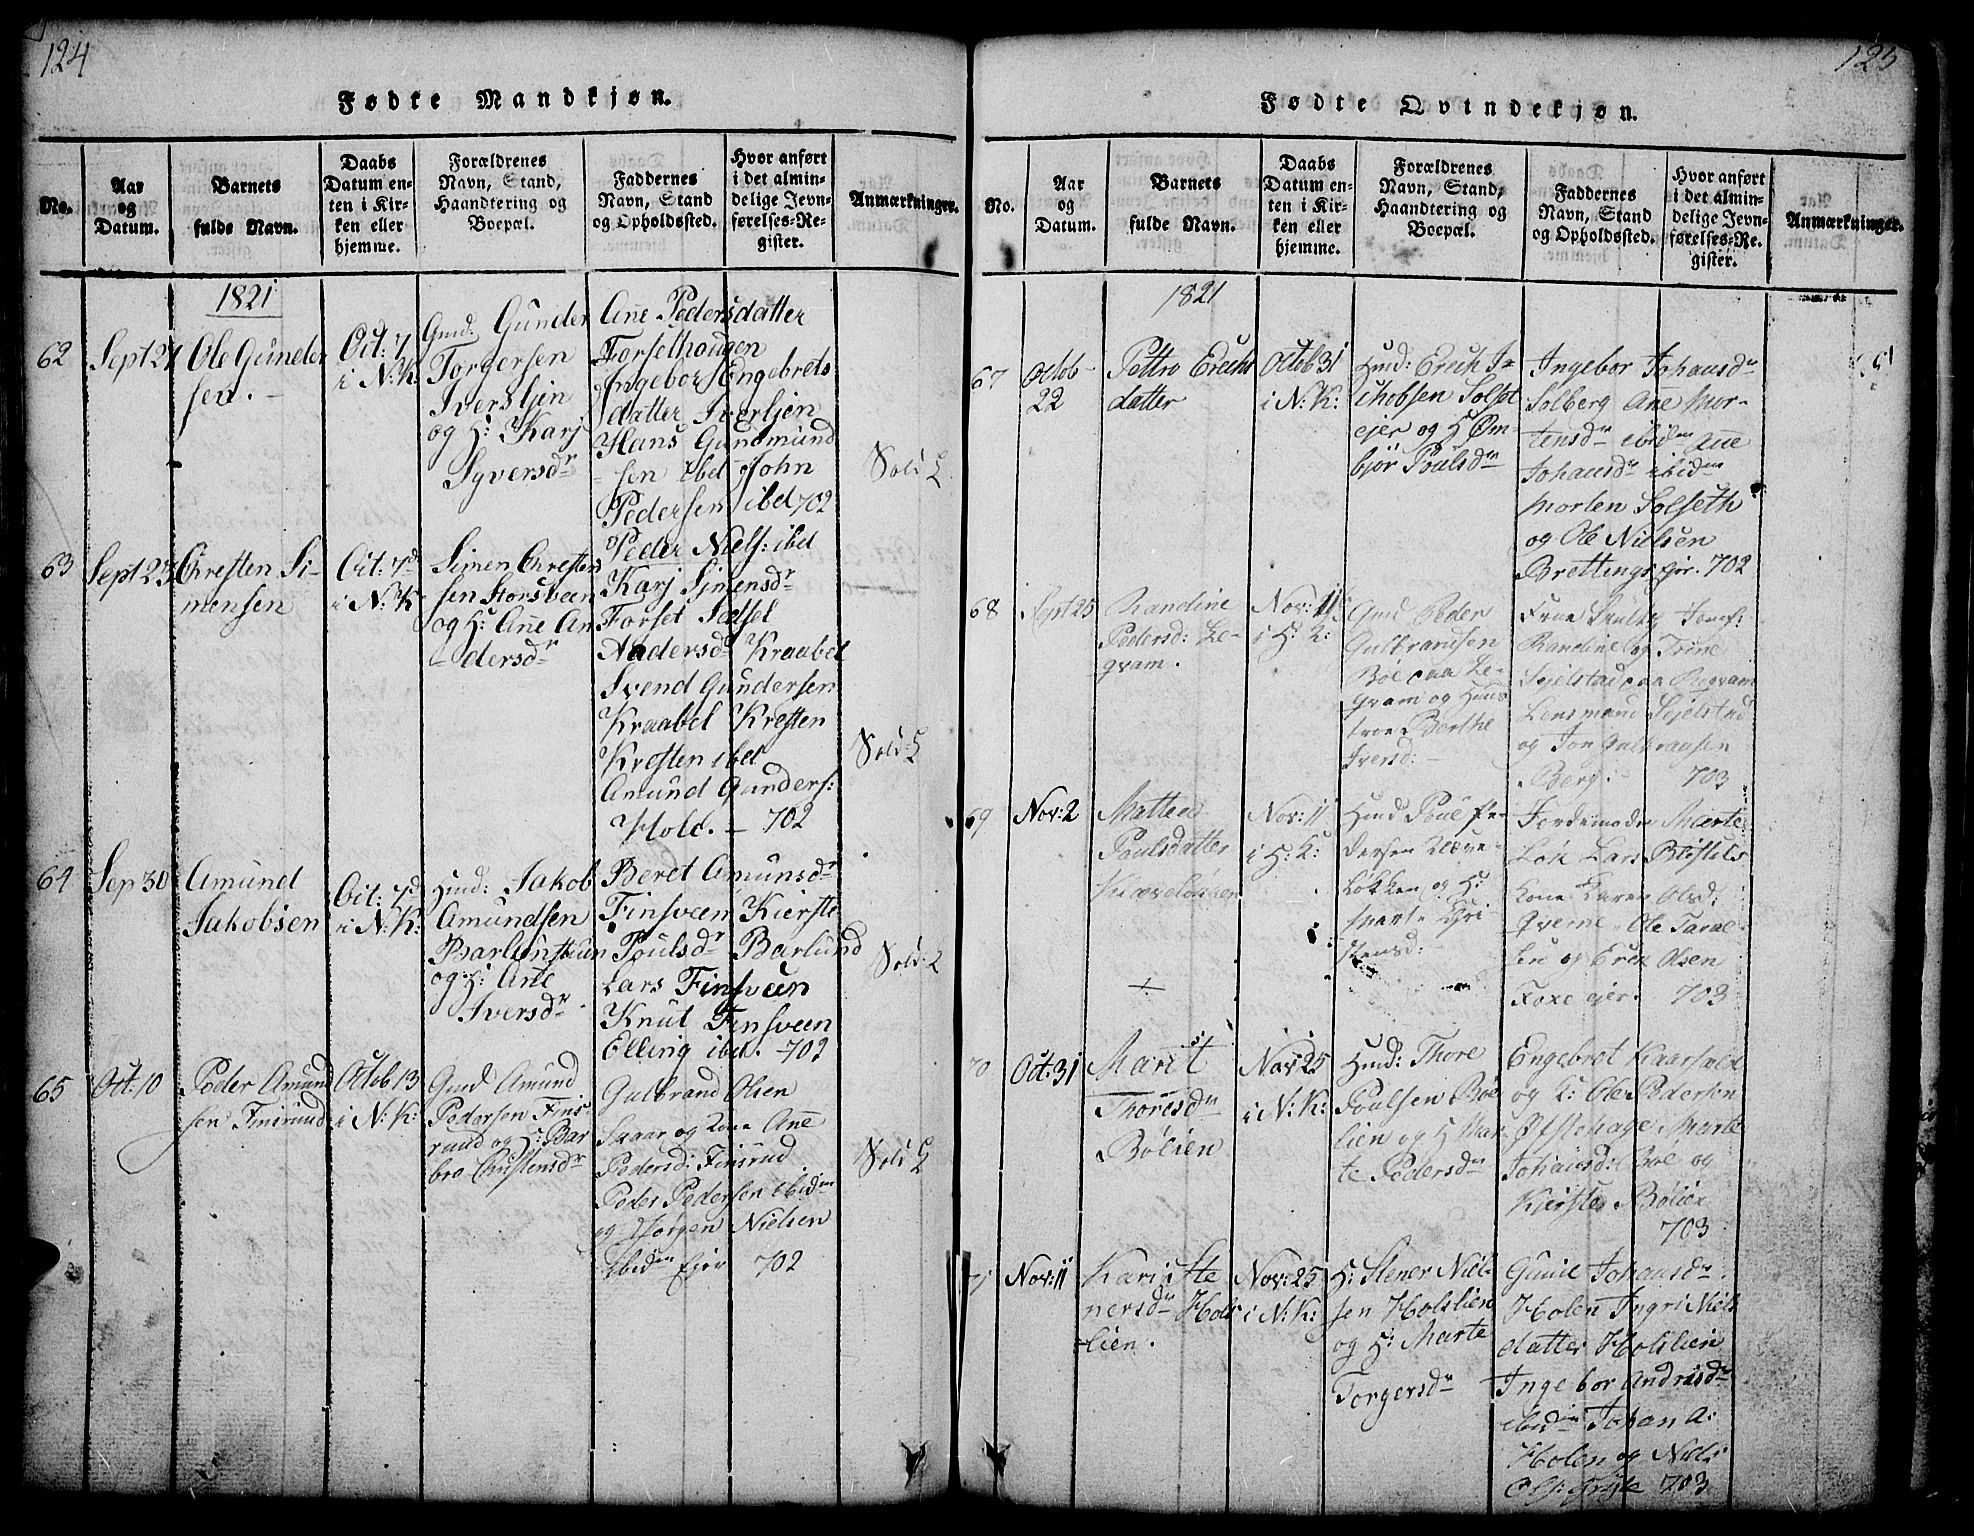 124
Fødte Mandkjøn.
No.
Aar
og
Datum.
Barnets
fulde Navn.
Daabs
Datum en-
ten i Kir-
ken eller
hjemme.
Forældrenes
Navn, Stand,
Haandtering og
Boepæl.
Faddernes
Navn, Stand
og Opholdssted.
Hvor anført
i det almin-
delige Jevn-
førelses-Re-
gister.
Anmærkninger.
1821
62
Ole Gunder
sen.
Oct: 7
i N:K:
Gmd. Gunder
Torgersen
Iverslien
og H: Karj
Syversdr
Ane Pedersdatter
Forsethougen
Ingebor Engebrets
datter Iverlien
Hans Gudmund
sen ibd John
Pedersen ibd 702
63
Sept 23
Christen Si-
mensen
Oct: 7d
i N:K
Simen Christen
sen Storsveen
og H: Ane An
dersdr
Peder Niels: ibd
Karj Simensdr
Forset Sidsel
Andersd Kraabel
Svend Gundersen
Kraabel Kresten
Kresten ibd
Amund Gunders:
Hold. – 702
64
Sep 30
Amund
Jakobsen
Oct: 7d
i N:K:
Hmd: Jakob
Amundsen
og H: Ane
Iversdr
Beret Amunsdr
Finsveen Kierste
Poulsdr Barlund
Lars Finsveen
Knut Finsveen
Elling ibd. 702
65
Oct. 10
Peder Amund
sen Finsrud
Octob 13
i N:K:
Gmd Amund
Pedersen Fins
rund og H: Bar
bra Christensdr
Gulbrand Olsen
Skaar og Kone Ane
Pedersd: Finsrud
Peder Pedersen ibidm
og Jørgen Nielsen
702
125
Fødte Qvindekjøn.
No.
Aar
og
Datum.
Barnets
fulde Navn.
Daabs
Datum en-
ten i Kir-
ken eller
hjemme.
Forældrenes
Navn, Stand,
Haandtering og
Boepæl.
Faddernes
Navn, Stand
og Opholdssted.
Hvor anført
i det almin-
delige Jevn-
førelses-Re-
gister.
Anmærkninger.
1821
67
Octob-
22
Pettro Erichs
datter
Octob 31
i N:K:
Hmd: Erich Ja-
chobsen Solset
ejer og H Øm-
bjør Poulsdr
Ingebor Johansdr
Solberg Ane Mor-
tensdr ibidm Ane
Johansdr ibidm
Morten Solseth
og Ole Nielsen
Brettings ejer. 702
68
Sept 25
Randine
Pedersd: Le-
gvam.
Nov: 11
i H: K:
Gmd Peder
Gulbrandsen
Bøe paa Le-
gvam og Hus
troe Berthe
Iversd:
Randine og Trine
Lensmand Sejelstad
og Jon Gulbransen
Berg. 703
69
Nov: 2
Mattea
Poulsdatter
Kløveløkken
Nov: 11
i H: K:
Hmd Poul Pe-
dersen Kløve-
løkken og H:
Marte Chri-
stensd:
Jordemoder Marte
Kone Karen Olsd:
Qverne Ole Taral-
Lie og Erik Olsen
Foxe ejer. 703
70
Oct: 31
Marit
Thoresdr
Bølien
Nov: 25
i N: K:
Hmd: Thore
Poulsen Bøe
lien og H Mar
te Pedersdr
Engebret Kaarsæld
og K: Ole Pedersen
Østehage Marte
Johansd: Bøe og
Kierste Bølien
703
71
Nov: 11
Kari Ste
nersdr Hols
lien.
Nov: 25
i N: K:
H: Stener Niel-
sen Holslien
og H: Marte
Torgersdr
Gunil Johansdr
Holen Ingri Niels
datter Holslien
Ingebor Andrisdr
ibidm Johan A:
Holen og Niels
703